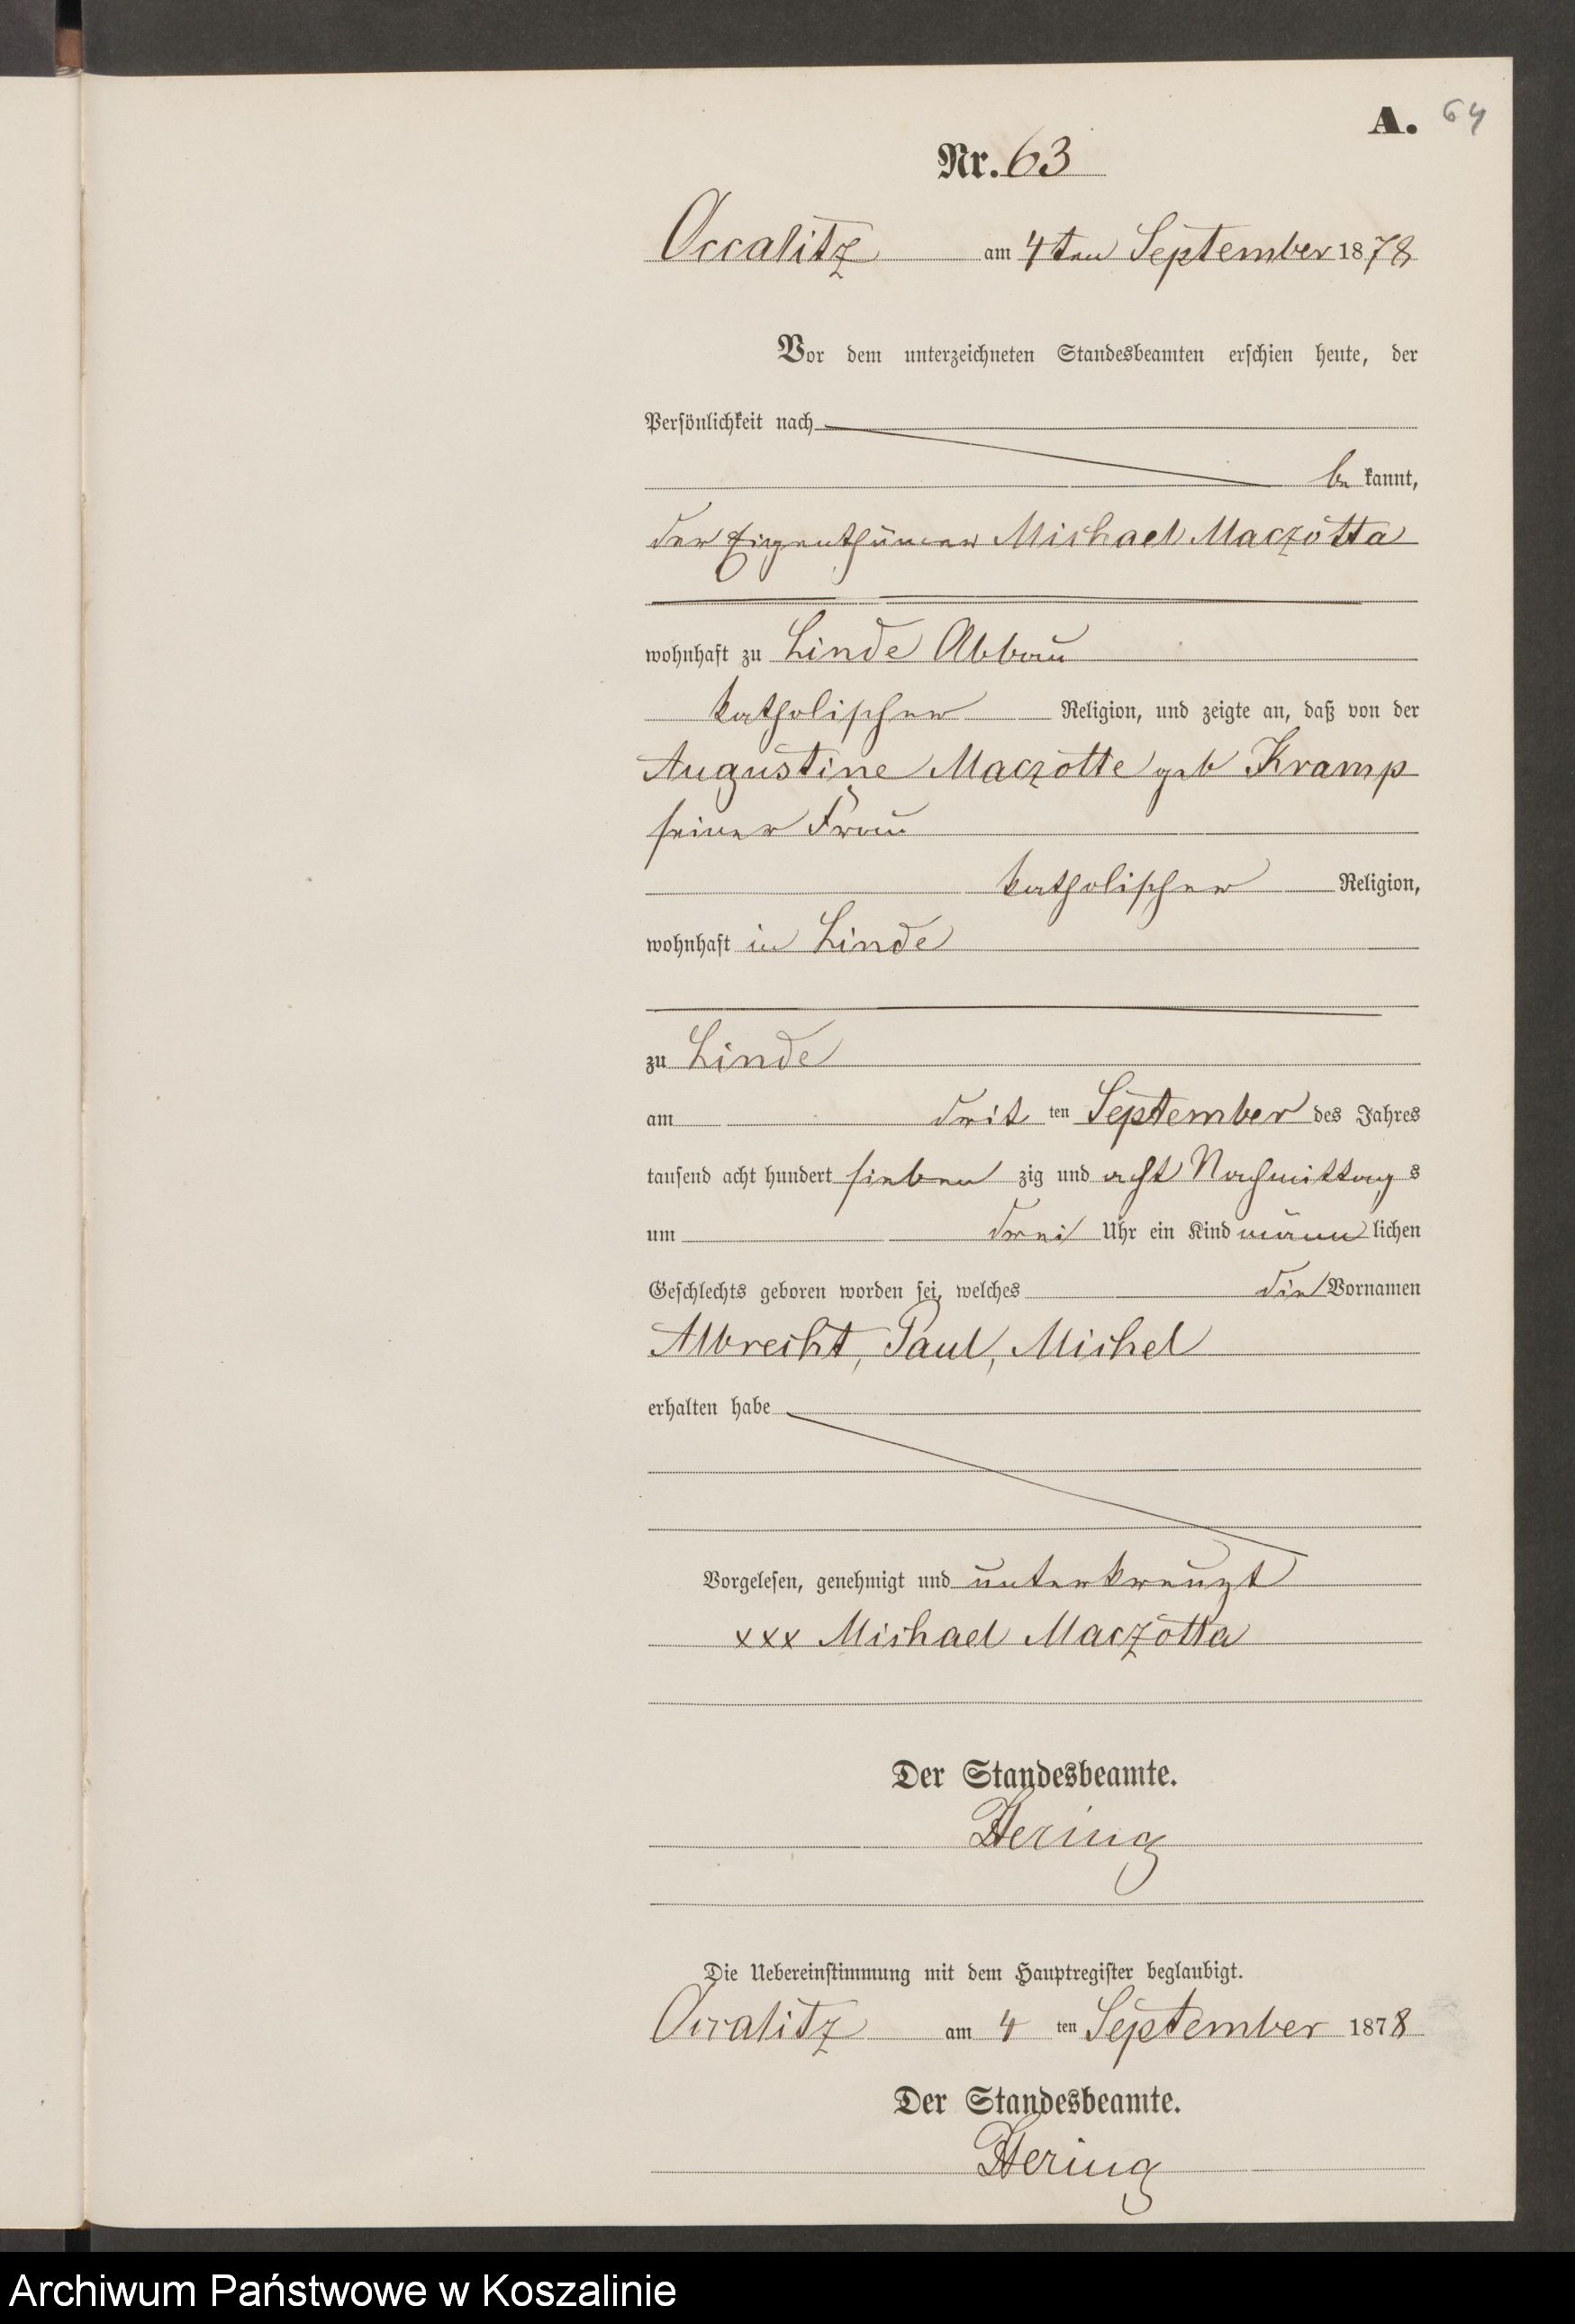 A. 64
Nr. 63
Occalitz am 4ten September 1878
Vor dem unterzeichneten Standesbeamten erschien heute, der
Persönlichkeit nach
be kannt,
der Eigenthümer Michael Maczotta
wohnhaft zu Linde Abbau
katholischer Religion, und zeigte an, daß von der
Augustine Maczotte geb Kramp
seiner Frau
katholischer Religion,
wohnhaft in Linde
zu Linde
am drit ten September des Jahres
tausend acht hundert sieben zig und acht Nachmittag s
um drei Uhr ein Kind männ lichen
Geschlechts geboren worden sei, welches die Vornamen
Albrecht, Paul, Michel
erhalten habe
Vorgelesen, genehmigt und unterkreuzt
xxx Michael Maczotta
Der Standesbeamte.
Hering
Die Uebereinstimmung mit dem Hauptregister beglaubigt.
Occalitz am 4 ten September 1878
Der Standesbeamte.
Hering
Archiwum Państwowe w Koszalinie